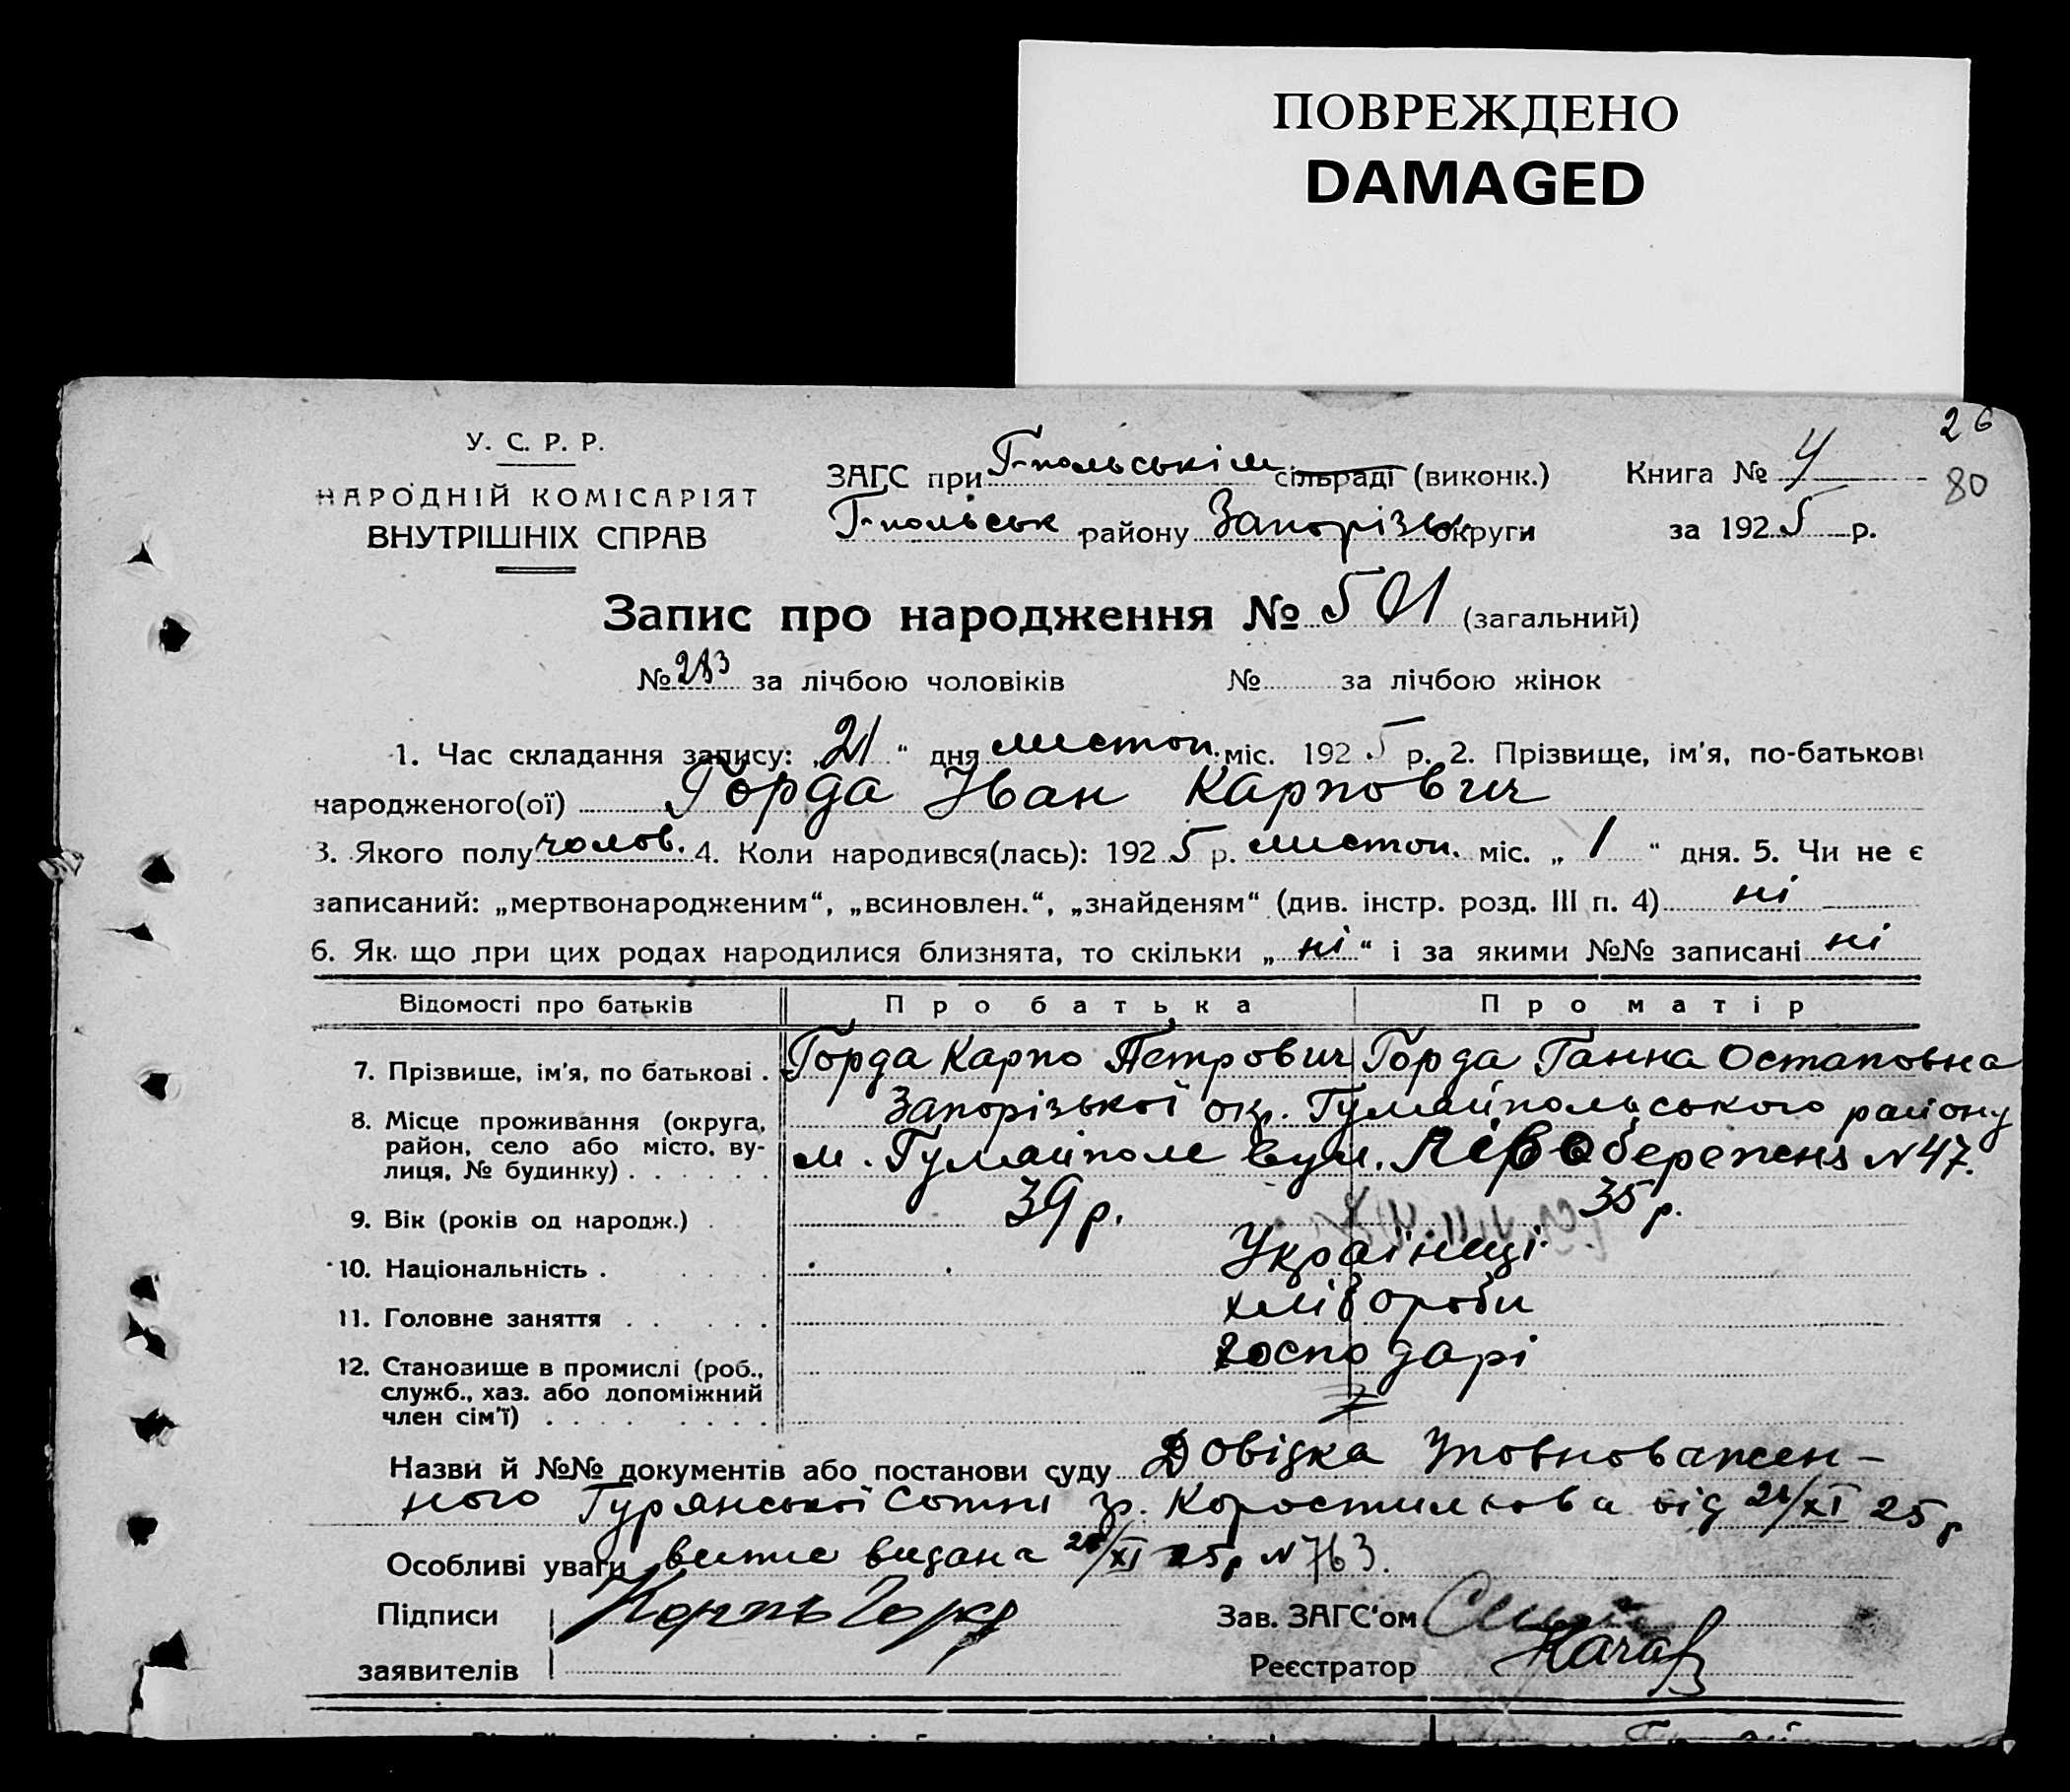 ПОВРЕЖДЕНО
DAMAGED
26
80
У. С. Р. Р.
НАРОДНІЙ КОМІСАРІЯТ
ВНУТРІШНІХ СПРАВ
ЗАГС при Г-польськім сільраді (виконк.)
Г-польськ району Запорізьк округи
Книга № 4
за 1925 р.
Запис про народження № 501 (загальний)
№ 283 за лічбою чоловіків № за лічбою жінок
1. Час складання запису: „21“ дня листоп. міс. 1925 р. 2. Прізвище, ім'я, по-батькові
народженого(ої) Горда Іван Карпович
3. Якого полу чолов. 4. Коли народився(лась): 1925 р. листоп. міс. „1“ дня. 5. Чи не є
записаний: „мертвонародженим“, „всиновлен.“, „знайденям“ (див. інстр. розд. III п. 4) ні
6. Як що при цих родах народилися близнята, то скільки „ні“ і за якими №№ записані ні
Відомості про батьків Про батька Про матір
7. Прізвище, ім'я, по батькові . Горда Карпо Петрович Горда Ганна Остаповна
8. Місце проживання (округа, Запорізької окр. Гуляйпольського району
район, село або місто, ву-
лиця, № будинку) . . . . . . м. Гуляйполе вул. Лівобережня N 47.
9. Вік (років од народж.) . 39 р. 35 р.
10. Національність . Українці
11. Головне заняття . . . . . хлібороби
12. Становище в промислі (роб., господарі
служб., хаз. або допоміжний
член сім'ї) . . . . . . . .
Назви й №№ документів або постанови суду Довідка Уповноважен-
ного Гурянської Сотні гр. Коростильова від /XI 25 р
Особливі уваги витяг видана /XI 25 р N 763.
Підписи Карпо Горда Зав. ЗАГС'ом
заявителів Реєстратор